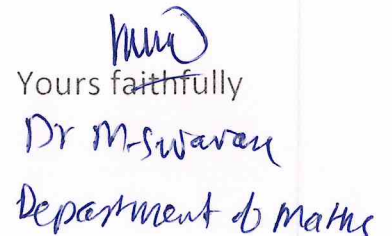 Yours faithfully
Dr M. Swaran
Department of Maths